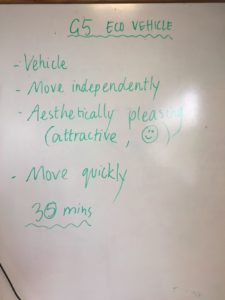 G5 ECO VEHICLE
- Vehicle
- Move independently
- Aesthetically pleasing
(attractive, ☺)
- Move quickly
30 mins